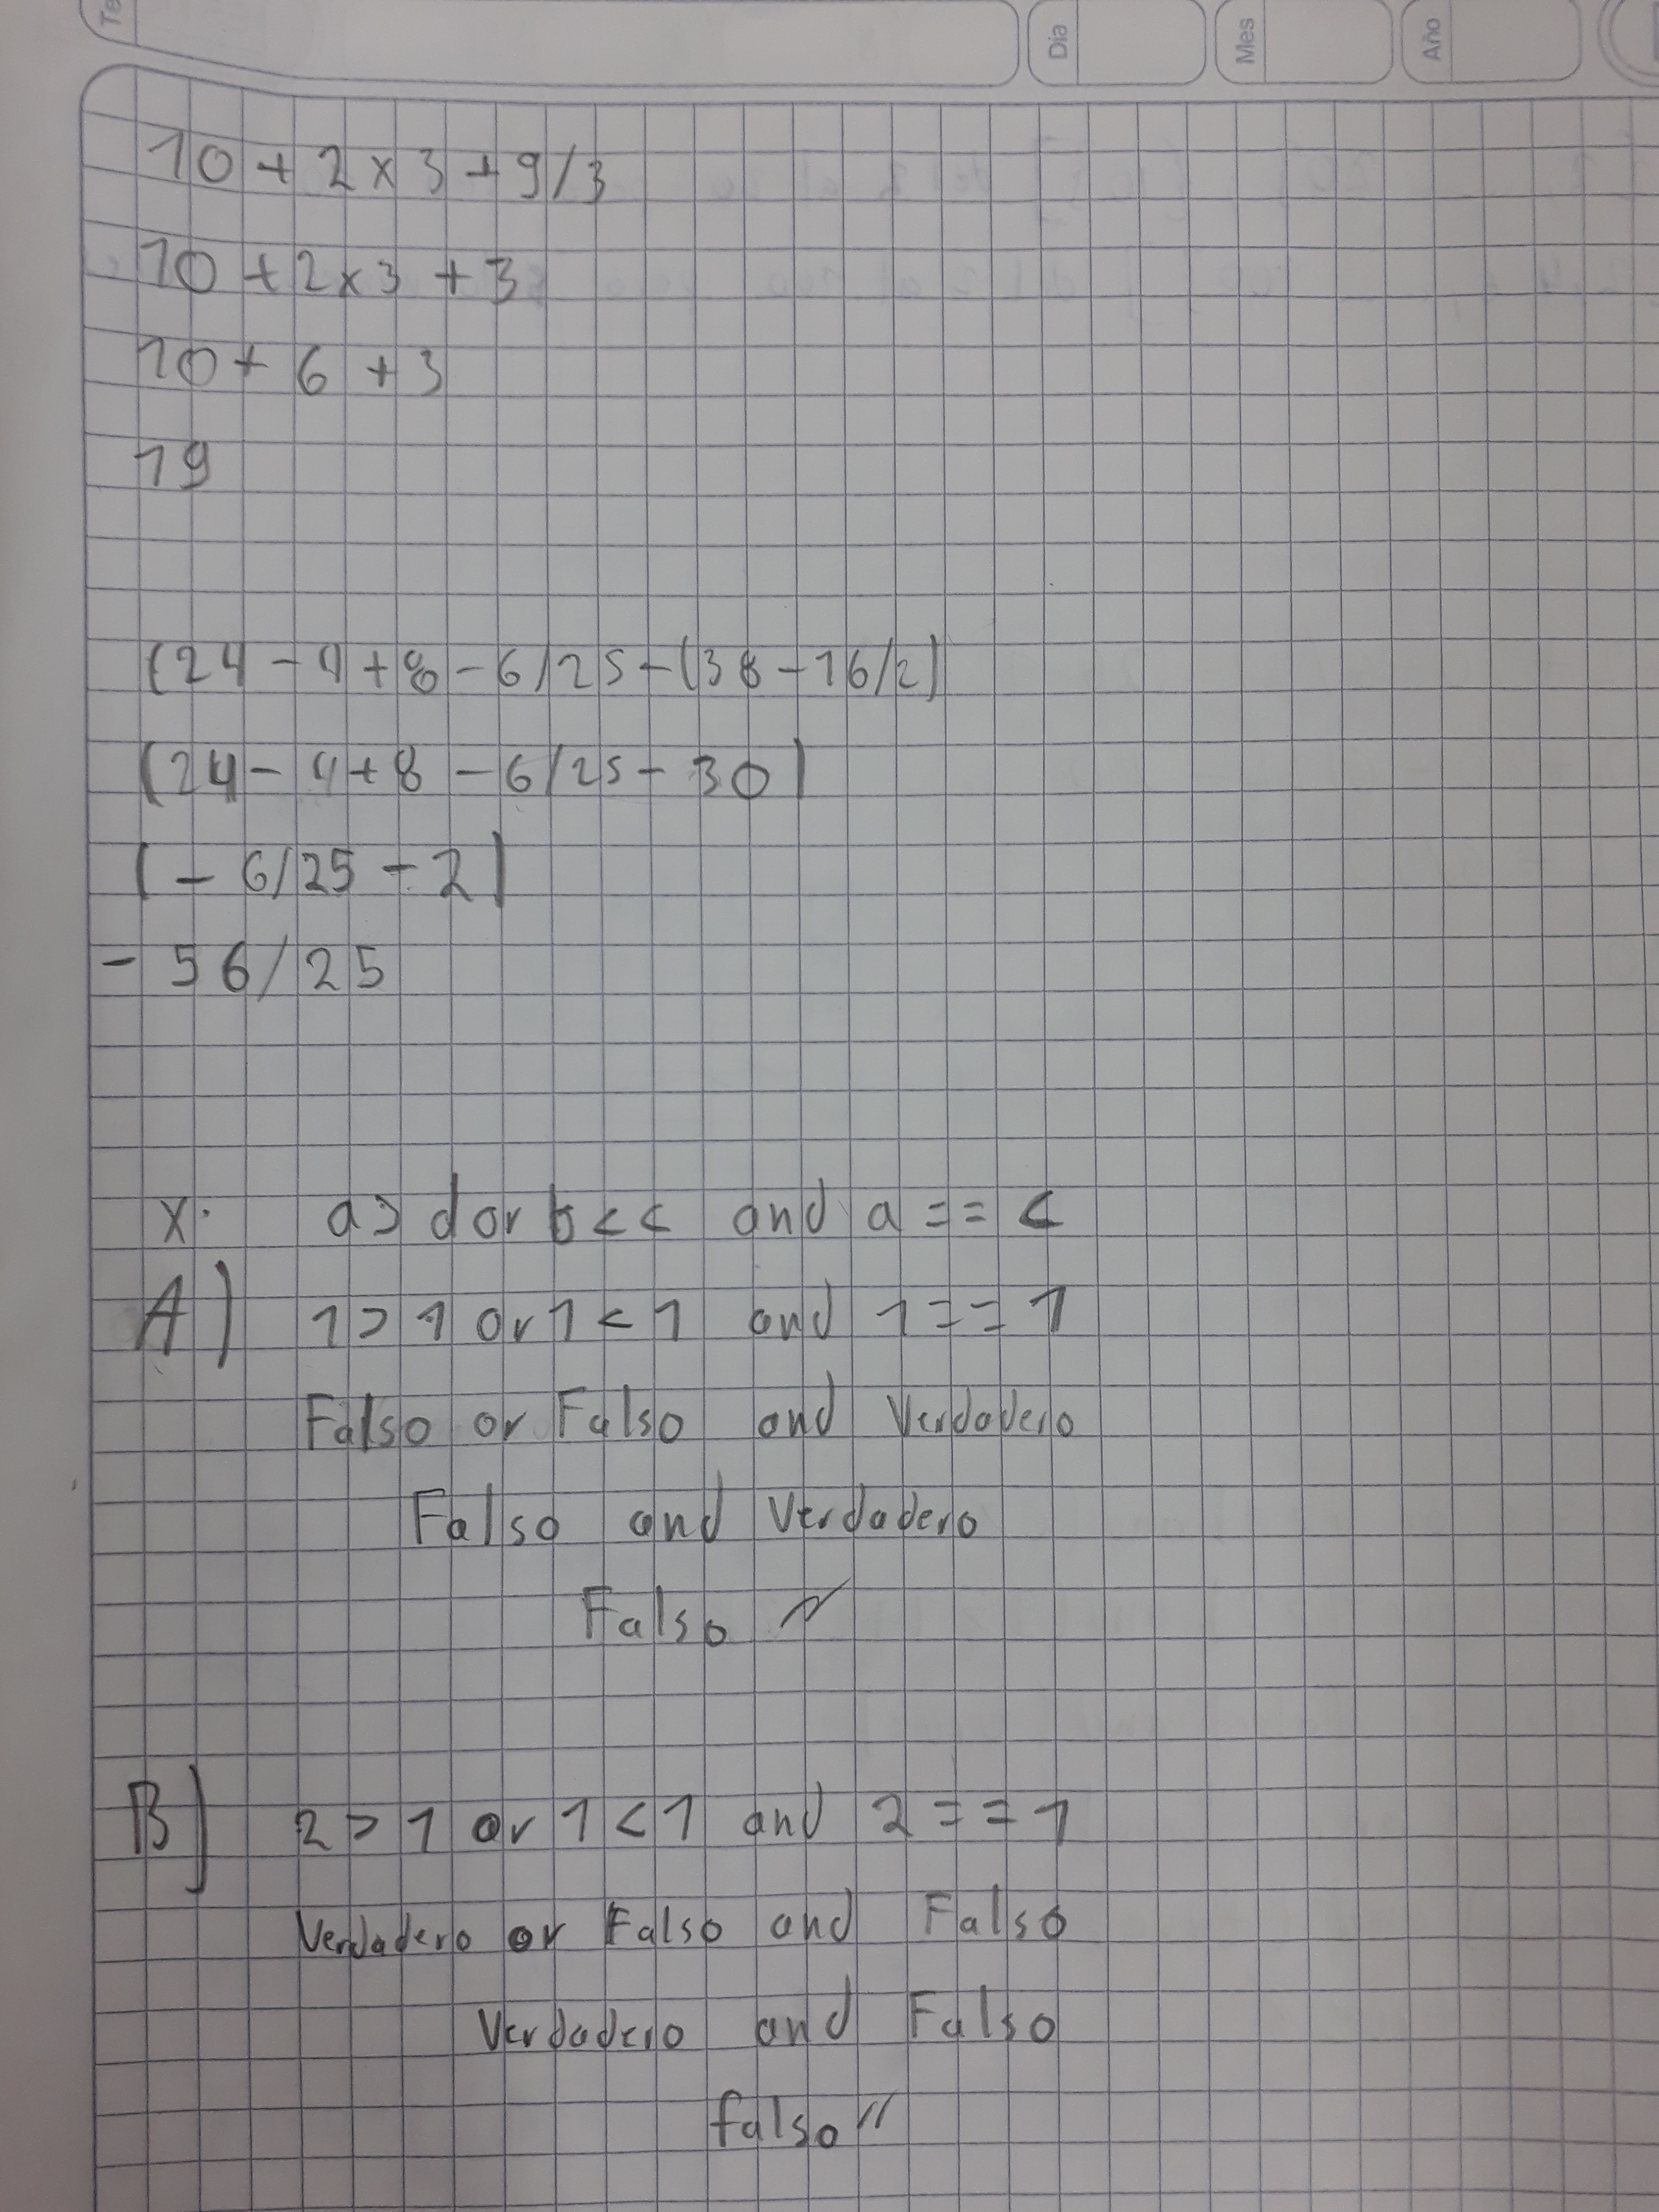 Te
Día
Mes
Año
10 + 2 x 3 + 9 / 3
10 + 2 x 3 + 3
10 + 6 + 3
19
(24 - 4 + 8 - 6/25 - (38 - 16/2)
(24 - 4 + 8 - 6/25 - 30)
(- 6/25 - 2)
- 56/25
x. a > d or b < c and a == c
A) 1 > 1 or 1 < 1 and 1 == 1
Falso or Falso and Verdadero
Falso and Verdadero
Falso
B) 2 > 1 or 1 < 1 and 2 == 1
Verdadero or Falso and Falso
Verdadero and Falso
falso //